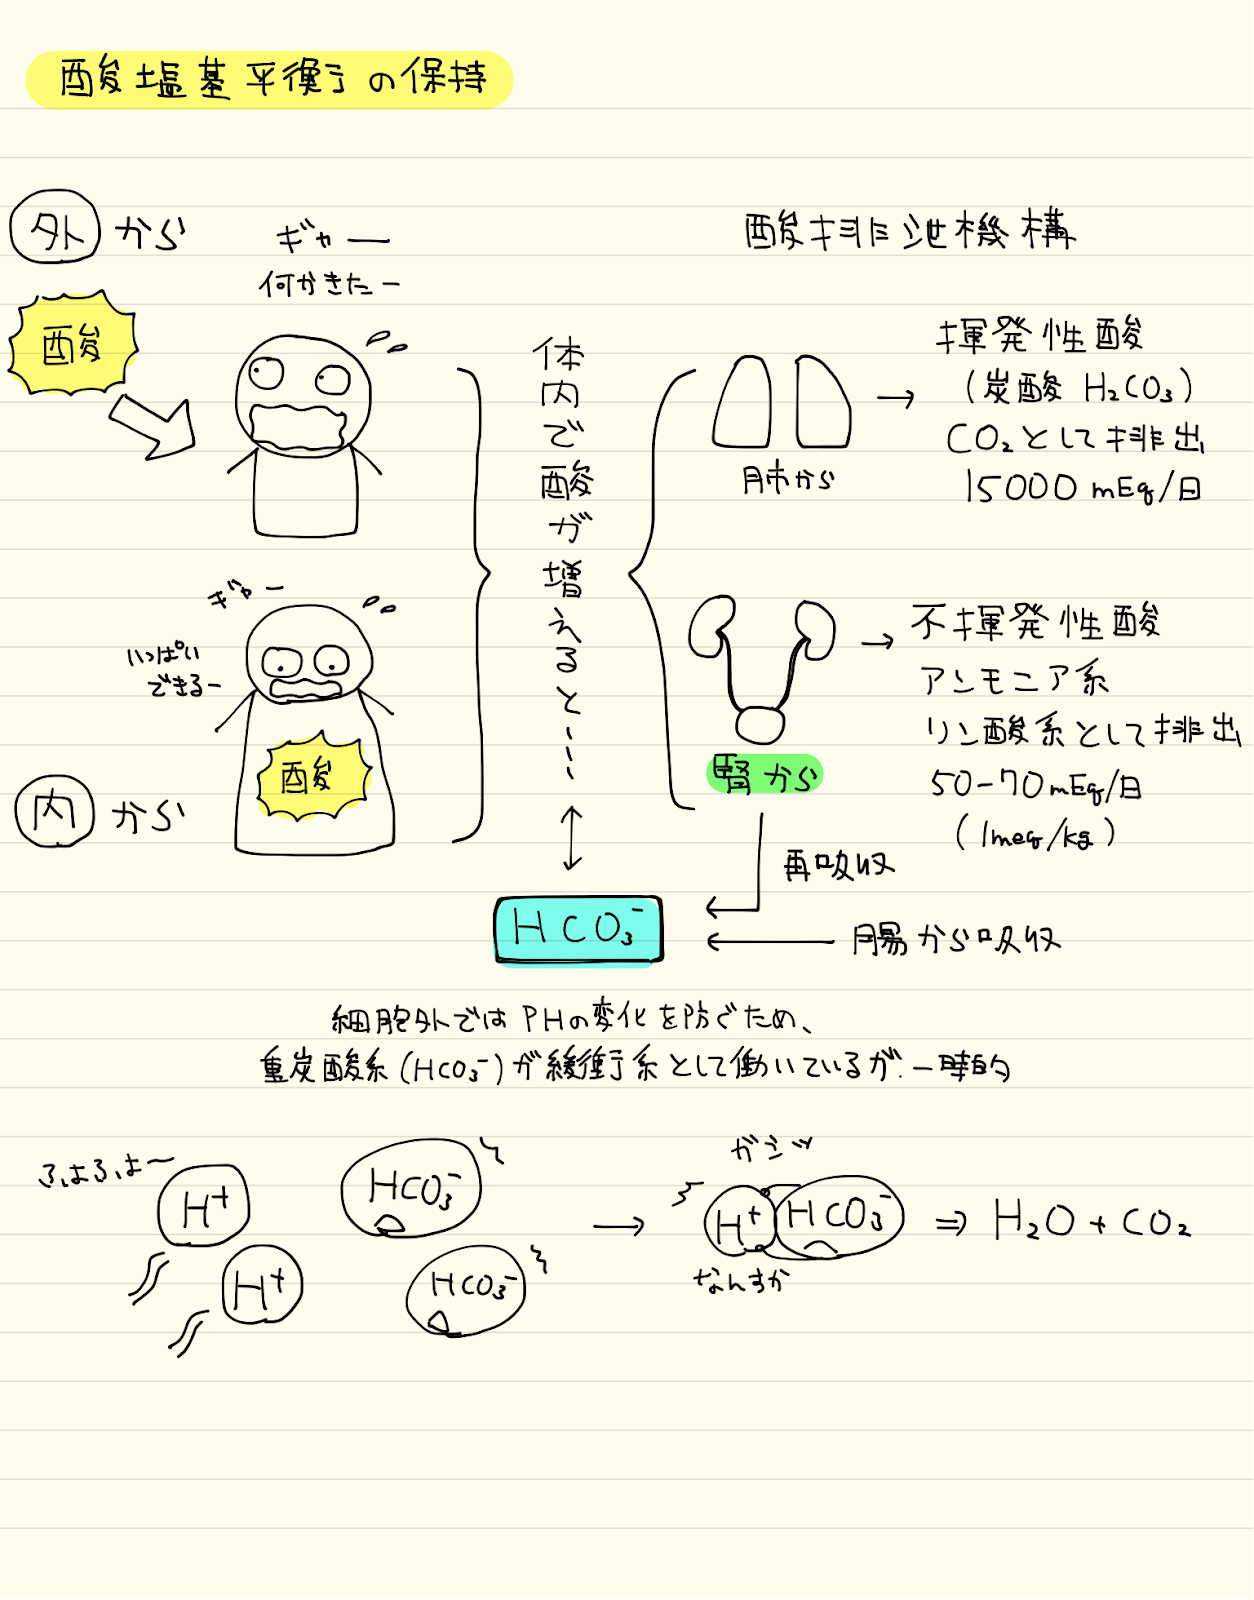 酸塩基平衡の保持
外から
ギャー
何かきたー
酸
ギャー
いっぱい
できるー
酸
内から
体内で酸が増えると……
酸排泄機構
肺から
揮発性酸
(炭酸 H₂CO₃)
CO₂として排出
15000 mEq/日
腎から
不揮発性酸
アンモニア系
リン酸系として排出
50-70mEq/日
(1meq/kg)
再吸収
腸から吸収
HCO₃⁻
細胞外ではPHの変化を防ぐため、
重炭酸系(HCO₃⁻)が緩衝系として働いているが、一時的
ふはふはー
H⁺
H⁺
HCO₃⁻
HCO₃⁻
ガシッ
H⁺ HCO₃⁻
なんすか
⇒ H₂O + CO₂